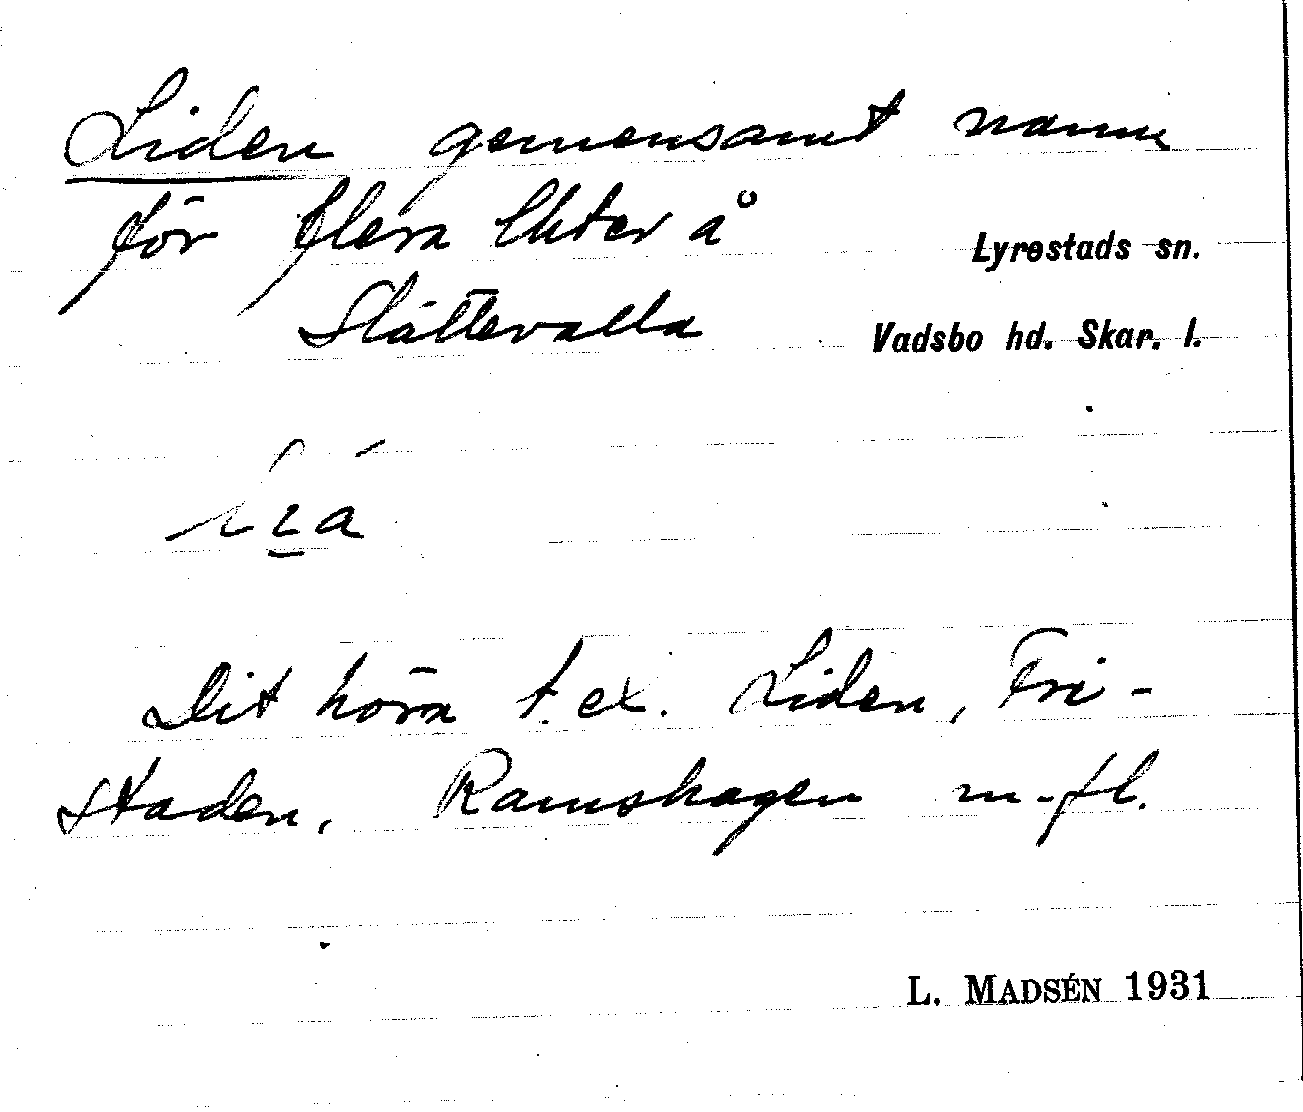 Liden gemensamt namn
för flera lhter å
Lyrestads sn.
Slättevalla
Vadsbo hd. Skar. l.
Dit höra t.ex. Liden, Fri-
staden, Ramshagen m.fl.
L. MADSÉN 1931